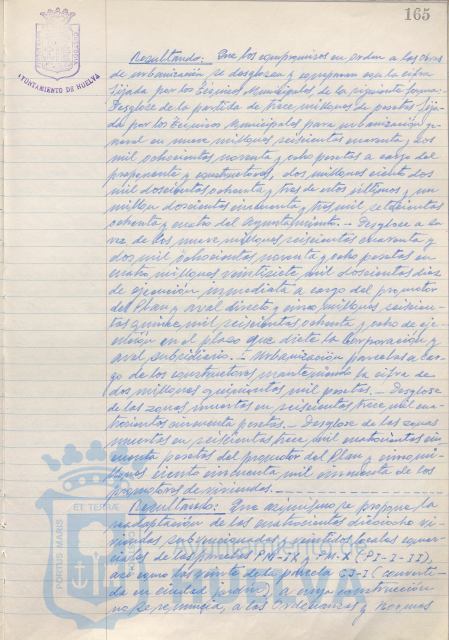 165
AYUNTAMIENTO DE HUELVA
Resultando: Que los compromisos en orden a las obras
de urbanización se desglosan y comparan con la cifra
fijada por los Técnicos Municipales de la siguiente forma:
Desglose de la partida de trece millones de pesetas fija-
da por los Técnicos Municipales para urbanización ge-
neral en nueve millones seiscientas cuarenta y dos
mil ochocientas noventa y ocho pesetas a cargo del
proponente y constructores, dos millones ciento dos
mil doscientas ochenta y tres de estos últimos y un
millón doscientas cincuenta y tres mil setecientas
ochenta y cuatro del Ayuntamiento.- Desglose a su
vez de los nueve millones seiscientas cuarenta y
dos mil ochocientas noventa y ocho pesetas en
cuatro millones veintisiete mil doscientas diez
de ejecución inmediata a cargo del promotor
del Plan y aval directo y cinco millones seiscien-
tas quince mil seiscientas ochenta y ocho de eje-
cución en el plazo que dicte la Corporación y
aval subsidiario.- Urbanización parcelas a car-
go de los constructores manteniendo la cifra de
dos millones quinientas mil pesetas.- Desglose
de las zonas muertas en seiscientas trece mil cua-
trocientas cincuenta pesetas.- Desglose de las zonas
muertas en seiscientas trece mil cuatrocientas cin-
cuenta pesetas del promotor del Plan y cinco mi-
llones ciento cincuenta mil cincuenta de los
promotores de viviendas.
Resultando: Que asimismo se propone la
readaptación de las cuatrocientas dieciocho vi-
viendas subvencionadas y veintidós locales comer-
ciales de las parcelas PM-IX y PM-X (PI-I-II),
así como las veinte de la parcela CJ-I (converti-
da en ciudad jardín) a cuya construcción
no se renuncia, a las Ordenanzas y Normas
ET TERRÆ
PORTUS MARIS